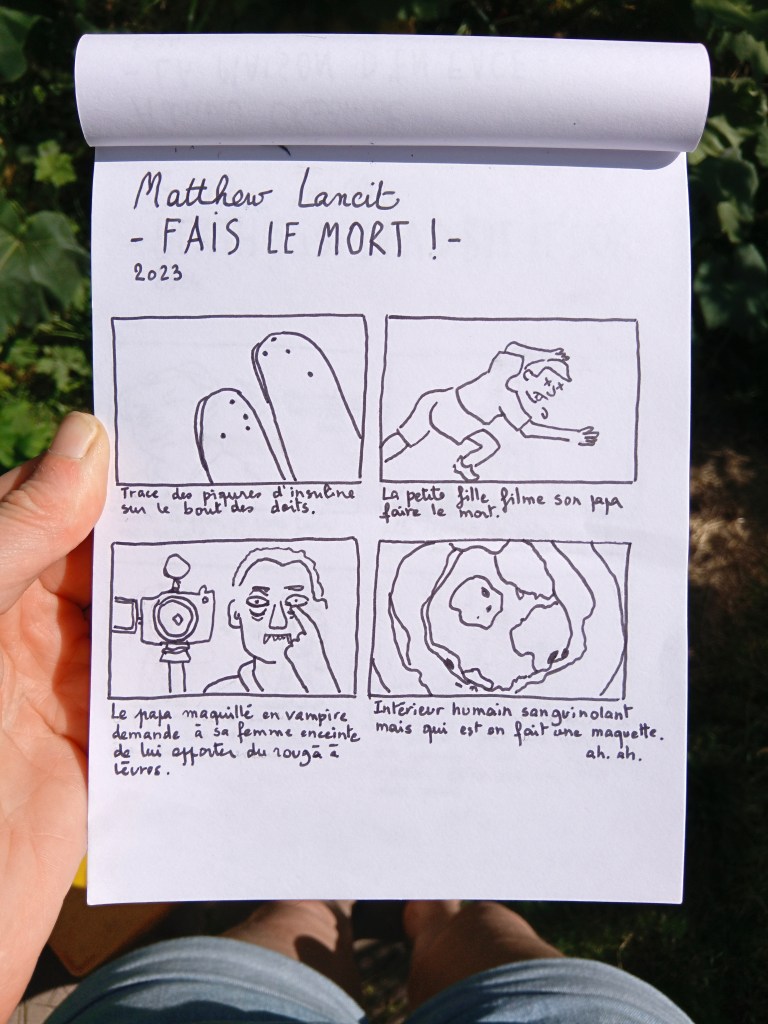 Matthew Lancit
- FAIS LE MORT ! -
2023
Trace des piqures d'insuline
sur le bout des doits.
La petite fille filme son papa
faire le mort.
Le papa maquillé en vampire
demande à sa femme enceinte
de lui apporter du rouge à
lèvres.
Intérieur humain sanguinolant
mais qui est en fait une maquette.
ah. ah.